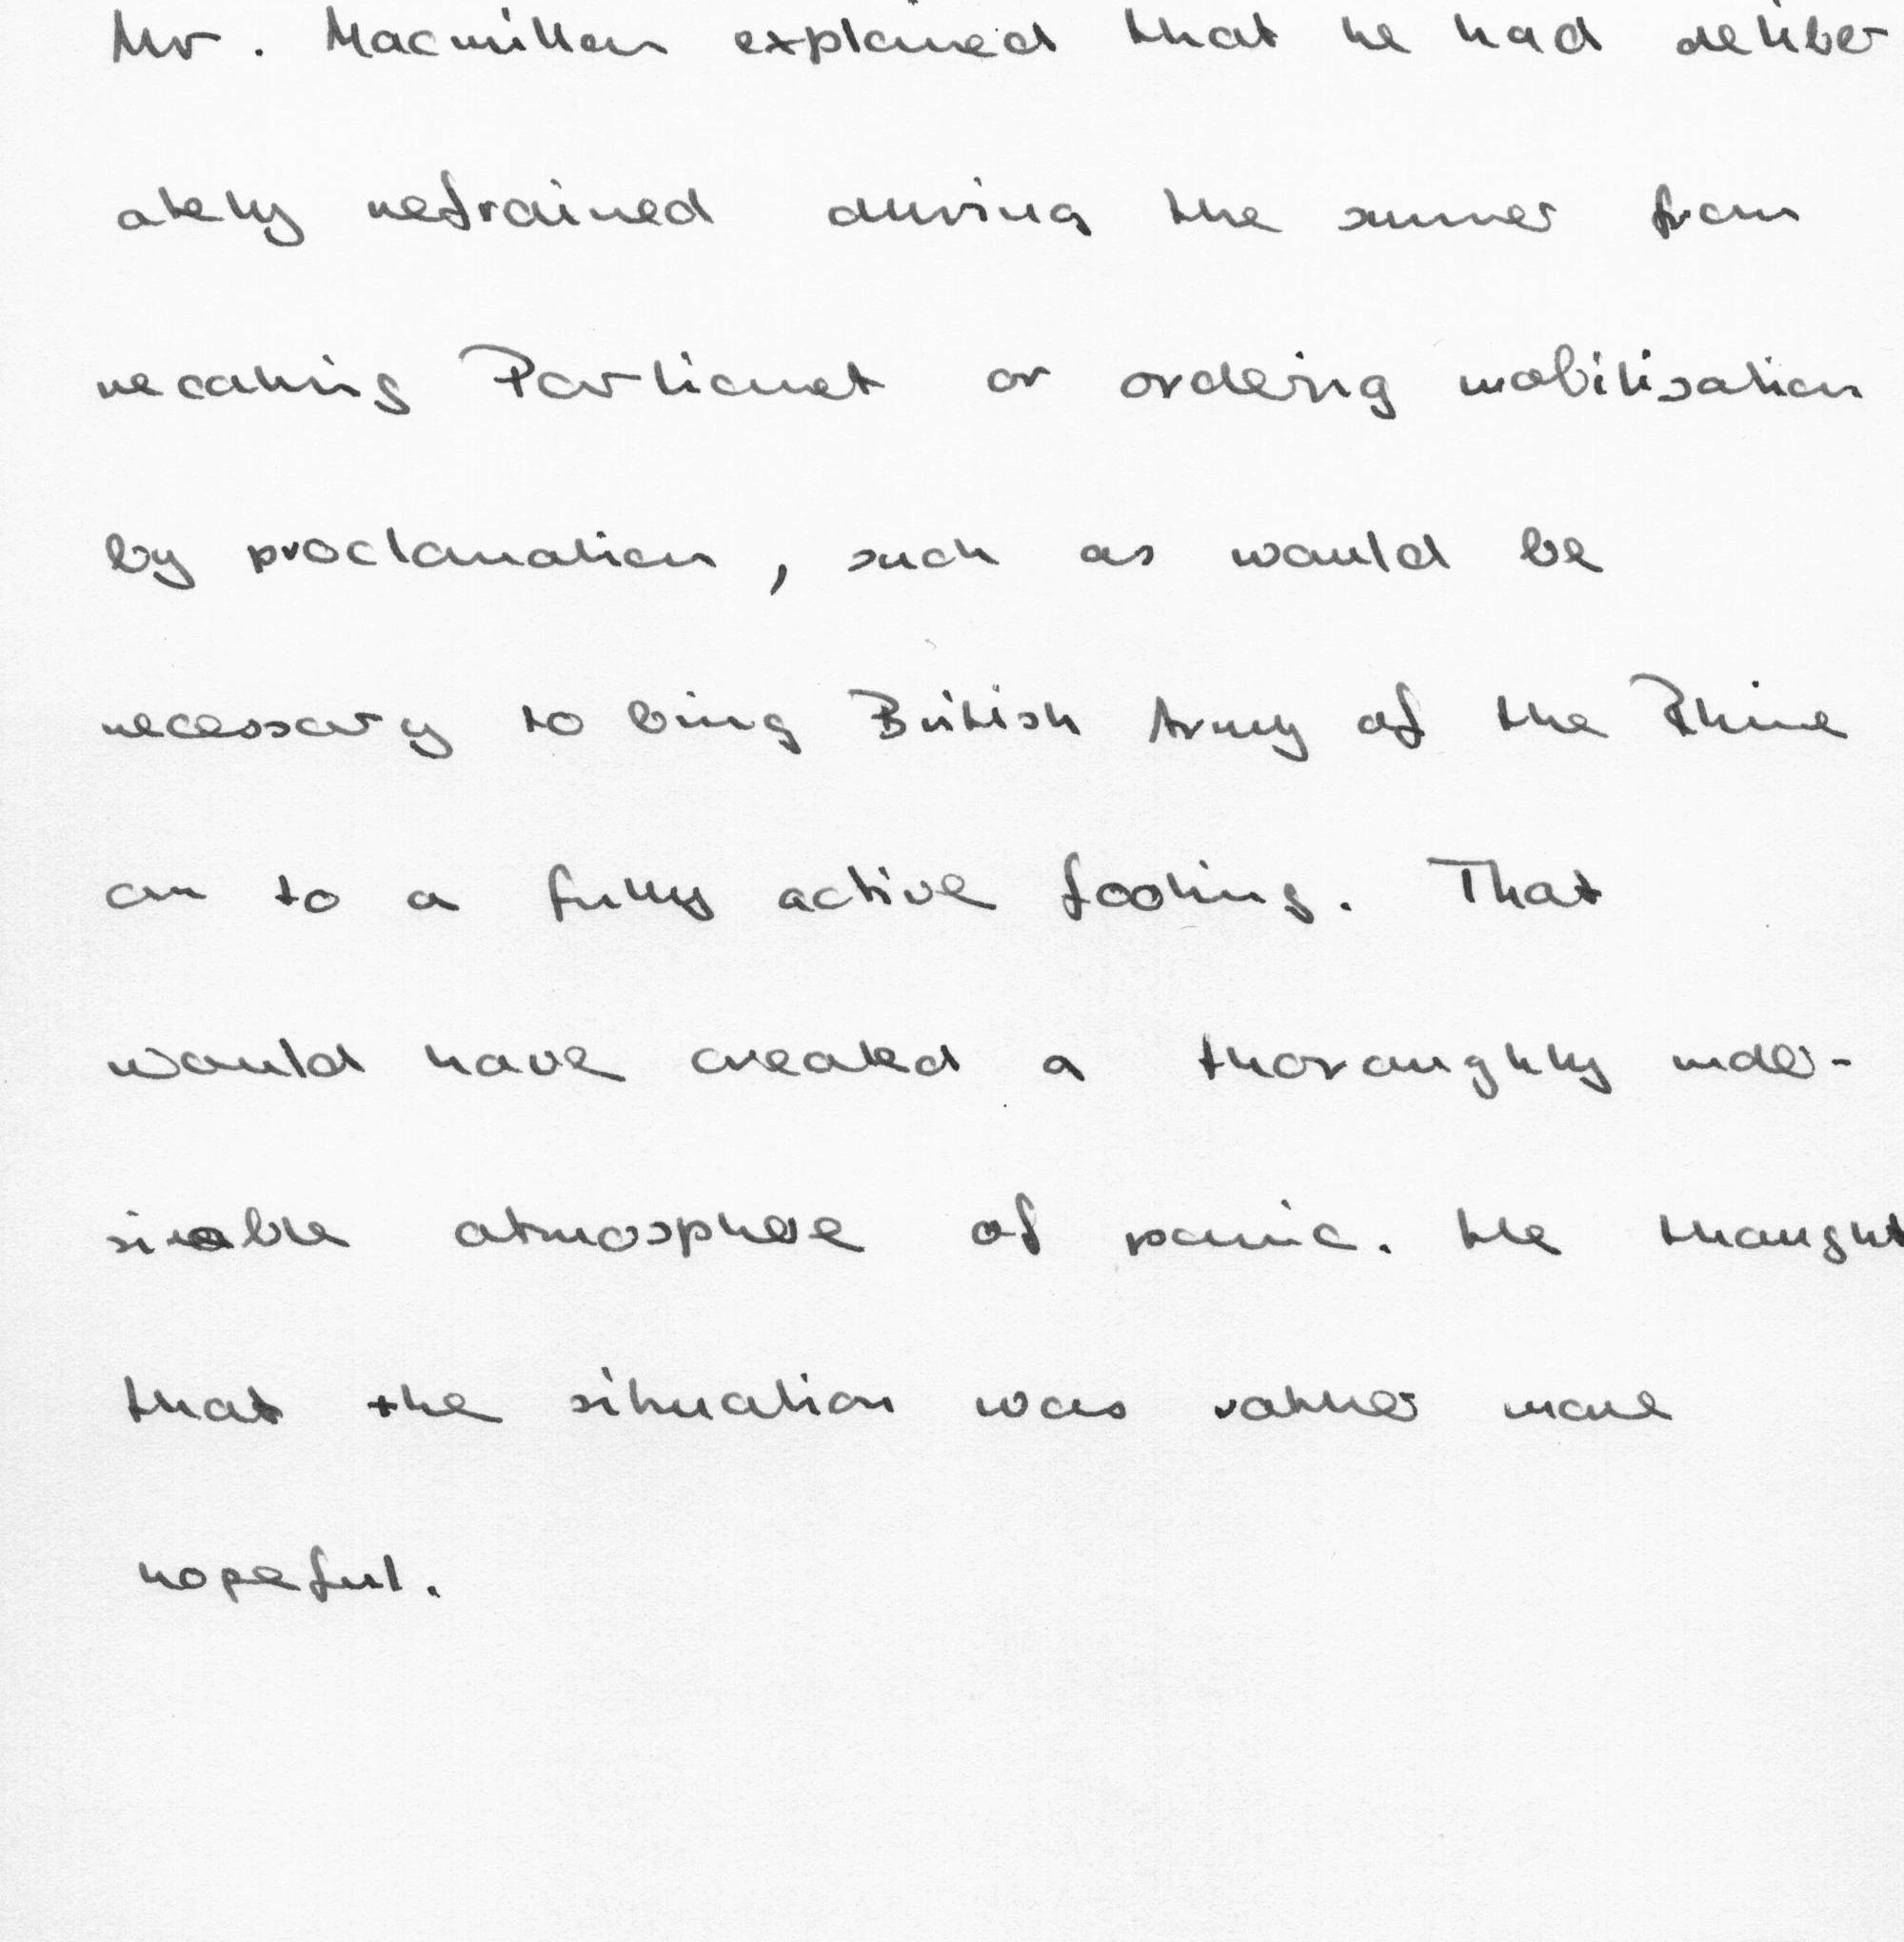 Mr. Macmillan explained that he had deliber
ately refrained during the summer from
recalling Parliament or ordering mobilisation
by proclamation, such as would be
necessary to bring British Army of the Rhine
on to a fully active footing. That
would have created a thoroughly unde-
sirable atmosphere of panic. He thought
that the situation was rather more
hopeful.